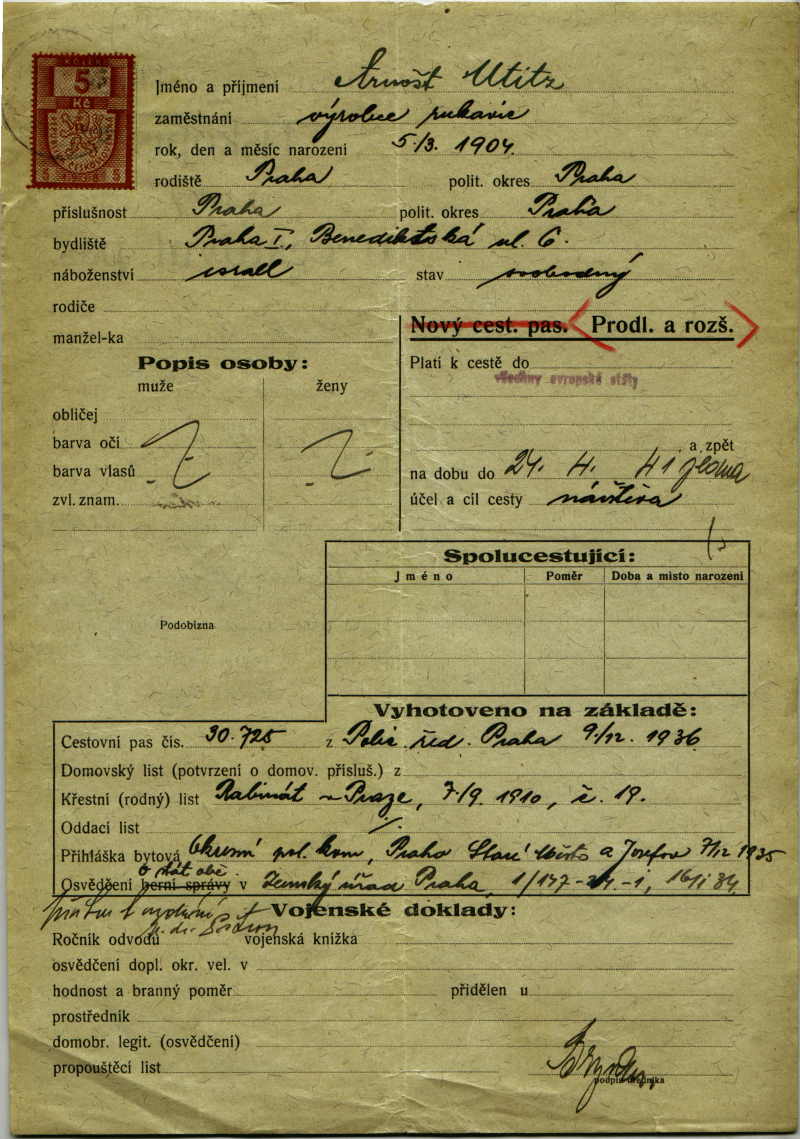 KOLEK
5
Kč
5 5
Jméno a příjmení Arnošt Utitz
zaměstnání výrobce rukavic
rok, den a měsíc narození 5./3. 1904.
rodiště Praha polit. okres Praha
příslušnost Praha polit. okres Praha
bydliště Praha I., Benediktská ul. 6.
náboženství israel stav svobodný
rodiče
manžel-ka
Nový cest. pas. Prodl. a rozš.
Popis osoby:
muže ženy
Platí k cestě do
všechny evropské státy
obličej
barva očí
barva vlasů
zvl. znam.
a zpět
na dobu do 24. 4. 41 jedna
účel a cíl cesty návštěva
Spolucestující:
Jméno Poměr Doba a místo narození
Podobizna
Vyhotoveno na základě:
Cestovní pas čís. 30.725 z Polic. řed. Praha 9/12. 1936
Domovský list (potvrzení o domov. přísluš.) z
Křestní (rodný) list Rabinát v Praze, 7/9. 1910, č. 19.
Oddací list
Přihláška bytová Okresní pol. kom, Praha Staré Město a Josefov 7/12 1935
o stát. obč.
Osvědčení berní správy v Zemský úřad Praha,
Vojenské doklady:
Ročník odvodu vojenská knížka
osvědčení dopl. okr. vel. v
hodnost a branný poměr přidělen u
prostředník
domobr. legit. (osvědčení)
propouštěcí list
podpis úředníka